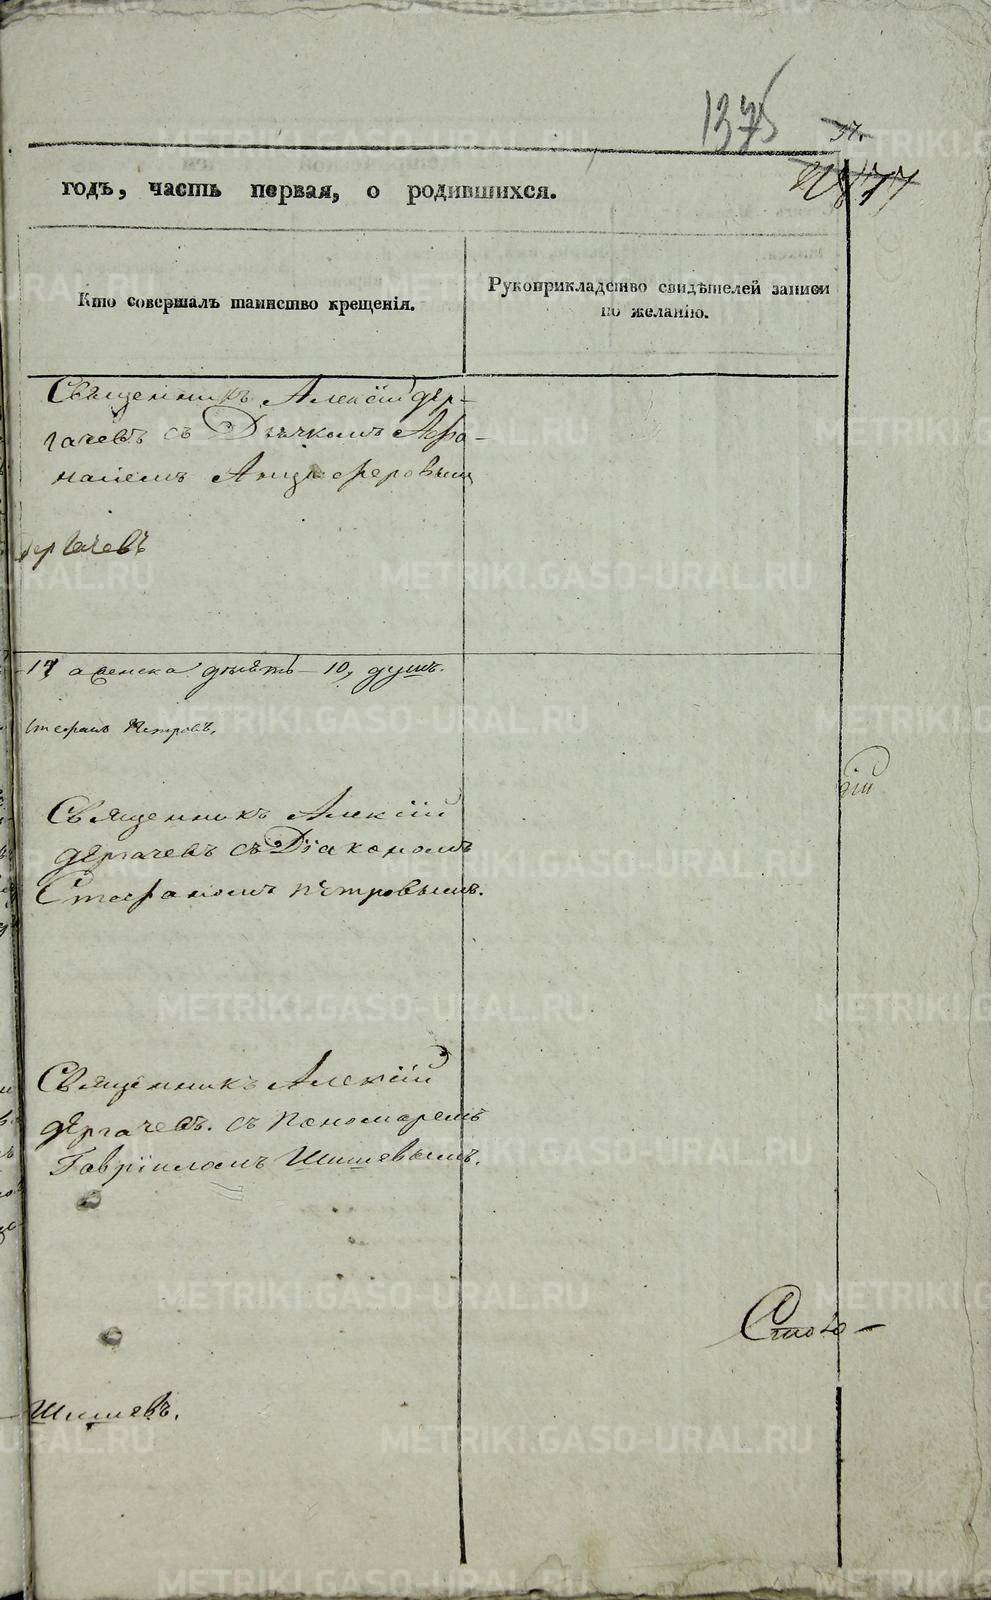 1375
37.
77
годъ, часть первая, о родившихся.
Кто совершалъ таинство крещенія.
Рукоприкладство свидѣтелей записи
по желанію.
Священникъ Алексій Дер-
гачевъ съ Дьячкомъ Афа-
насіемъ Анцыферовымъ
Дергачевъ
17, а женска 10, душъ.
Стефанъ Петровъ,
Священникъ Алексій
Дергачевъ съ Діакономъ
Стефаномъ Петровымъ.
гій
Священникъ Алексій
Дергачевъ. съ Пономаремъ
Гавріиломъ Шишевымъ.
Шишевъ.
METRIKI.GASO-URAL.RU